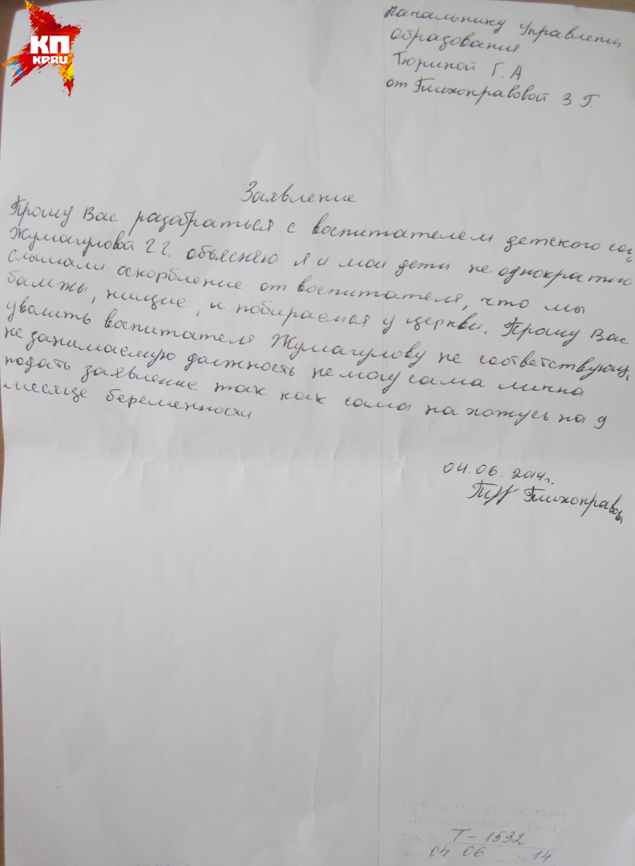 КП
KP.RU
начальнику Управлени
образования
Тюриной Г. А.
от Тихоправовой З Г.
Заявление
Прошу Вас разобраться с воспитателем детского са
Жумагуловой Г.Г. объясняю я и мои дети не однократно
слышали оскорбление от воспитателя, что мы
бамжы, нищие, и побираемся у церкви. Прошу Вас
уволить воспитателя Жумагулову не соответствующ.
не занимаемую должность не могу сама лична
подать заявление так как сама на хожусь на 9
месяце беременности
04.06.2014г.
Тихоправова
Т-1532
04 06 14